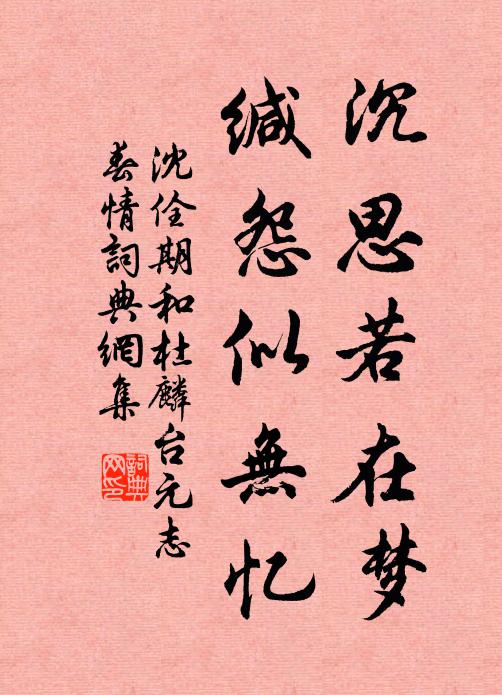 沉思若在梦
缄怨似無忆
沈佺期和杜麟台元志
春情詞典網集
詞典网印